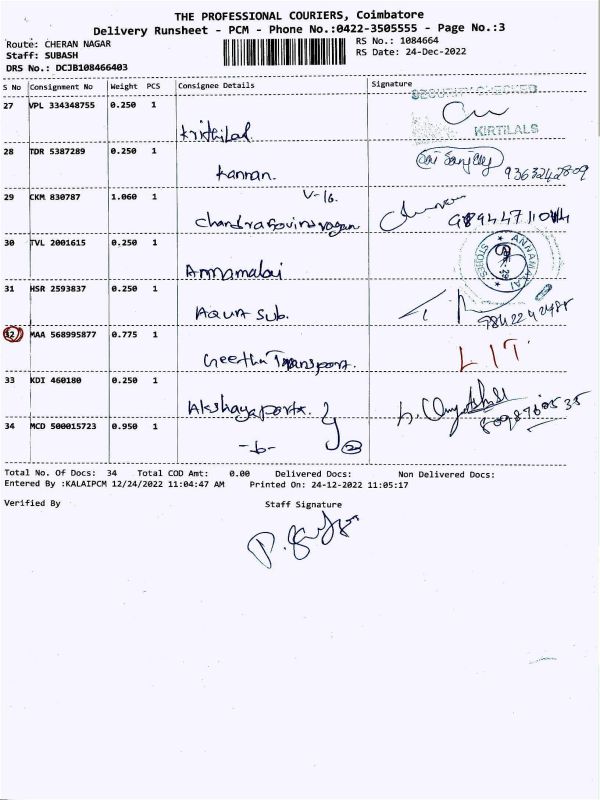 THE PROFESSIONAL COURIERS, Coimbatore
Delivery Runsheet - PCM - Phone No.:0422-3505555 - Page No.:3
Route: CHERAN NAGAR
RS No.: 1084664
Staff: SUBASH
RS Date: 24-Dec-2022
DRS No.: DCJB108466403
S No Consignment No Weight PCS Consignee Details Signature
27 VPL 334348755 0.250 1
SECURITY CHECKED
KIRTILALS
Krithilal
28 TDR 5387289 0.250 1
Kannan.
Sai Sanjay
9363242809
29 CKM 830787 1.060 1
V-16.
9894471044
30 TVL 2001615 0.250 1
Annamalai
ANNAMALAI STORES
31 HSR 2593837 0.250 1
Aqua Sub.
9842242485
32 MAA 568995877 0.775 1
Geetha Transport.
LIT
33 KDI 460180 0.250 1
Akshayaporta.
34 MCD 500015723 0.950 1
-b-
23
Total No. Of Docs: 34 Total COD Amt: 0.00 Delivered Docs: Non Delivered Docs:
Entered By :KALAIPCM 12/24/2022 11:04:47 AM Printed On: 24-12-2022 11:05:17
Verified By Staff Signature